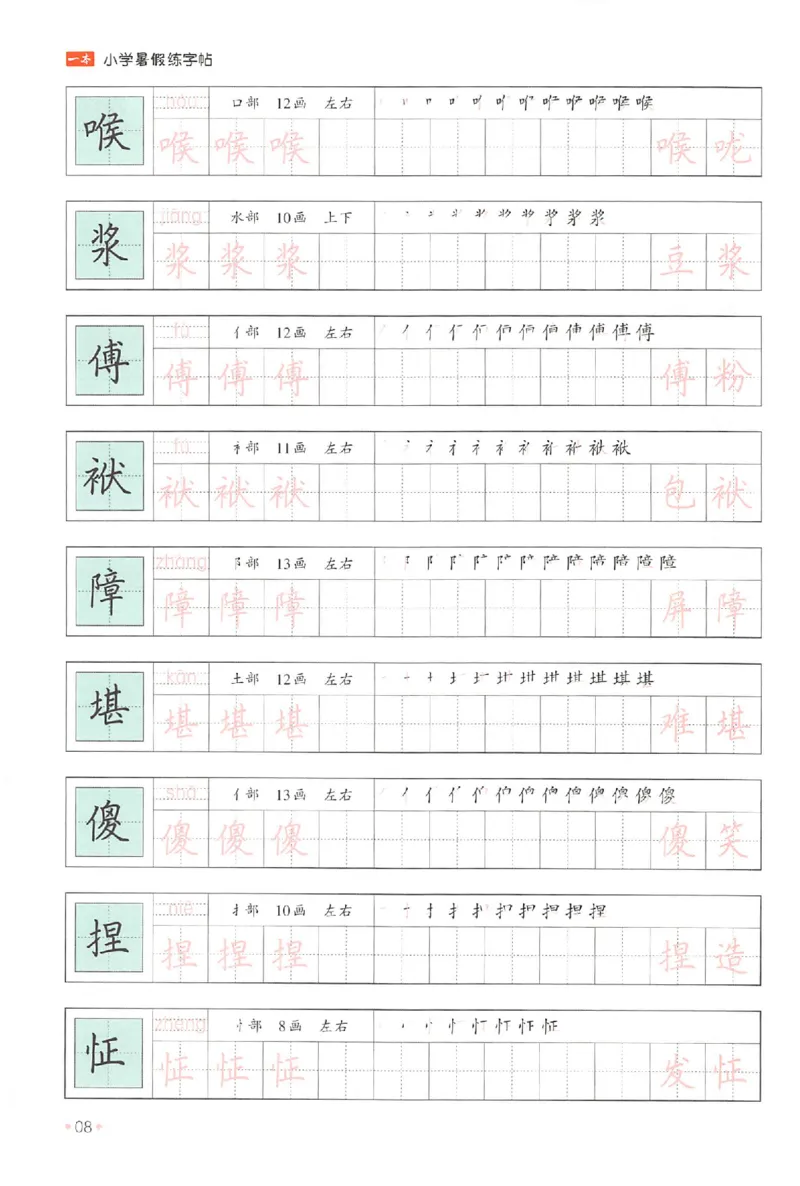 一本 小学暑假练字帖
喉 hóu 口部 12画 左右
喉 喉 喉 喉 咙
浆 jiāng 水部 10画 上下
浆 浆 浆 豆 浆
傅 fù 亻部 12画 左右
傅 傅 傅 傅 粉
袱 fú 衤部 11画 左右
袱 袱 袱 包 袱
障 zhàng 阝部 13画 左右
障 障 障 屏 障
堪 kān 土部 12画 左右
堪 堪 堪 难 堪
傻 shǎ 亻部 13画 左右
傻 傻 傻 傻 笑
捏 niē 扌部 10画 左右
捏 捏 捏 捏 造
怔 zhèng 忄部 8画 左右
怔 怔 怔 发 怔
08